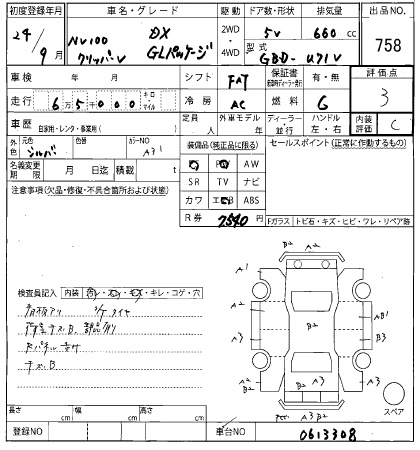 初度登録年月 車名・グレード 駆動 ドア数・形状 排気量 出品NO.
24年 9月 NV100 クリッパーV DX GLパッケージ 2WD・4WD 5V 660 cc 758
型式 GBD-U71V
車検 年 月 シフト FAT 保証書 有・無 評価点 3
走行 6万5千000 キロ マイル 冷房 AC 燃料 G
車歴 自家用・レンタ・事業用( ) 定員 人 外車モデル 年 ディーラー・並行 ハンドル 左・右 内装評価 C
外色 元色 シルバ 色替 カラーNO A31
装備品(純正品に限る) セールスポイント(正常に作動するもの)
名義変更期限 月 日迄 積載 t
PW AW
SR TV ナビ
カワ エアB ABS
注意事項(欠品・修復・不具合箇所および状態)
R券 7540 円
Fガラス トビ石・キズ・ヒビ・ワレ・リペア跡
検査員記入 内装 汚・スレ・キズ・キレ・コゲ・穴
看板アリ
荷室キズB
キズB
A1 B2 A2
A2 A1
AB1
B2
A3 B3
A2 B2 A3 A3
A3 B2
スペア
長さ cm 幅 cm 高さ cm
登録NO 車台NO 0613308